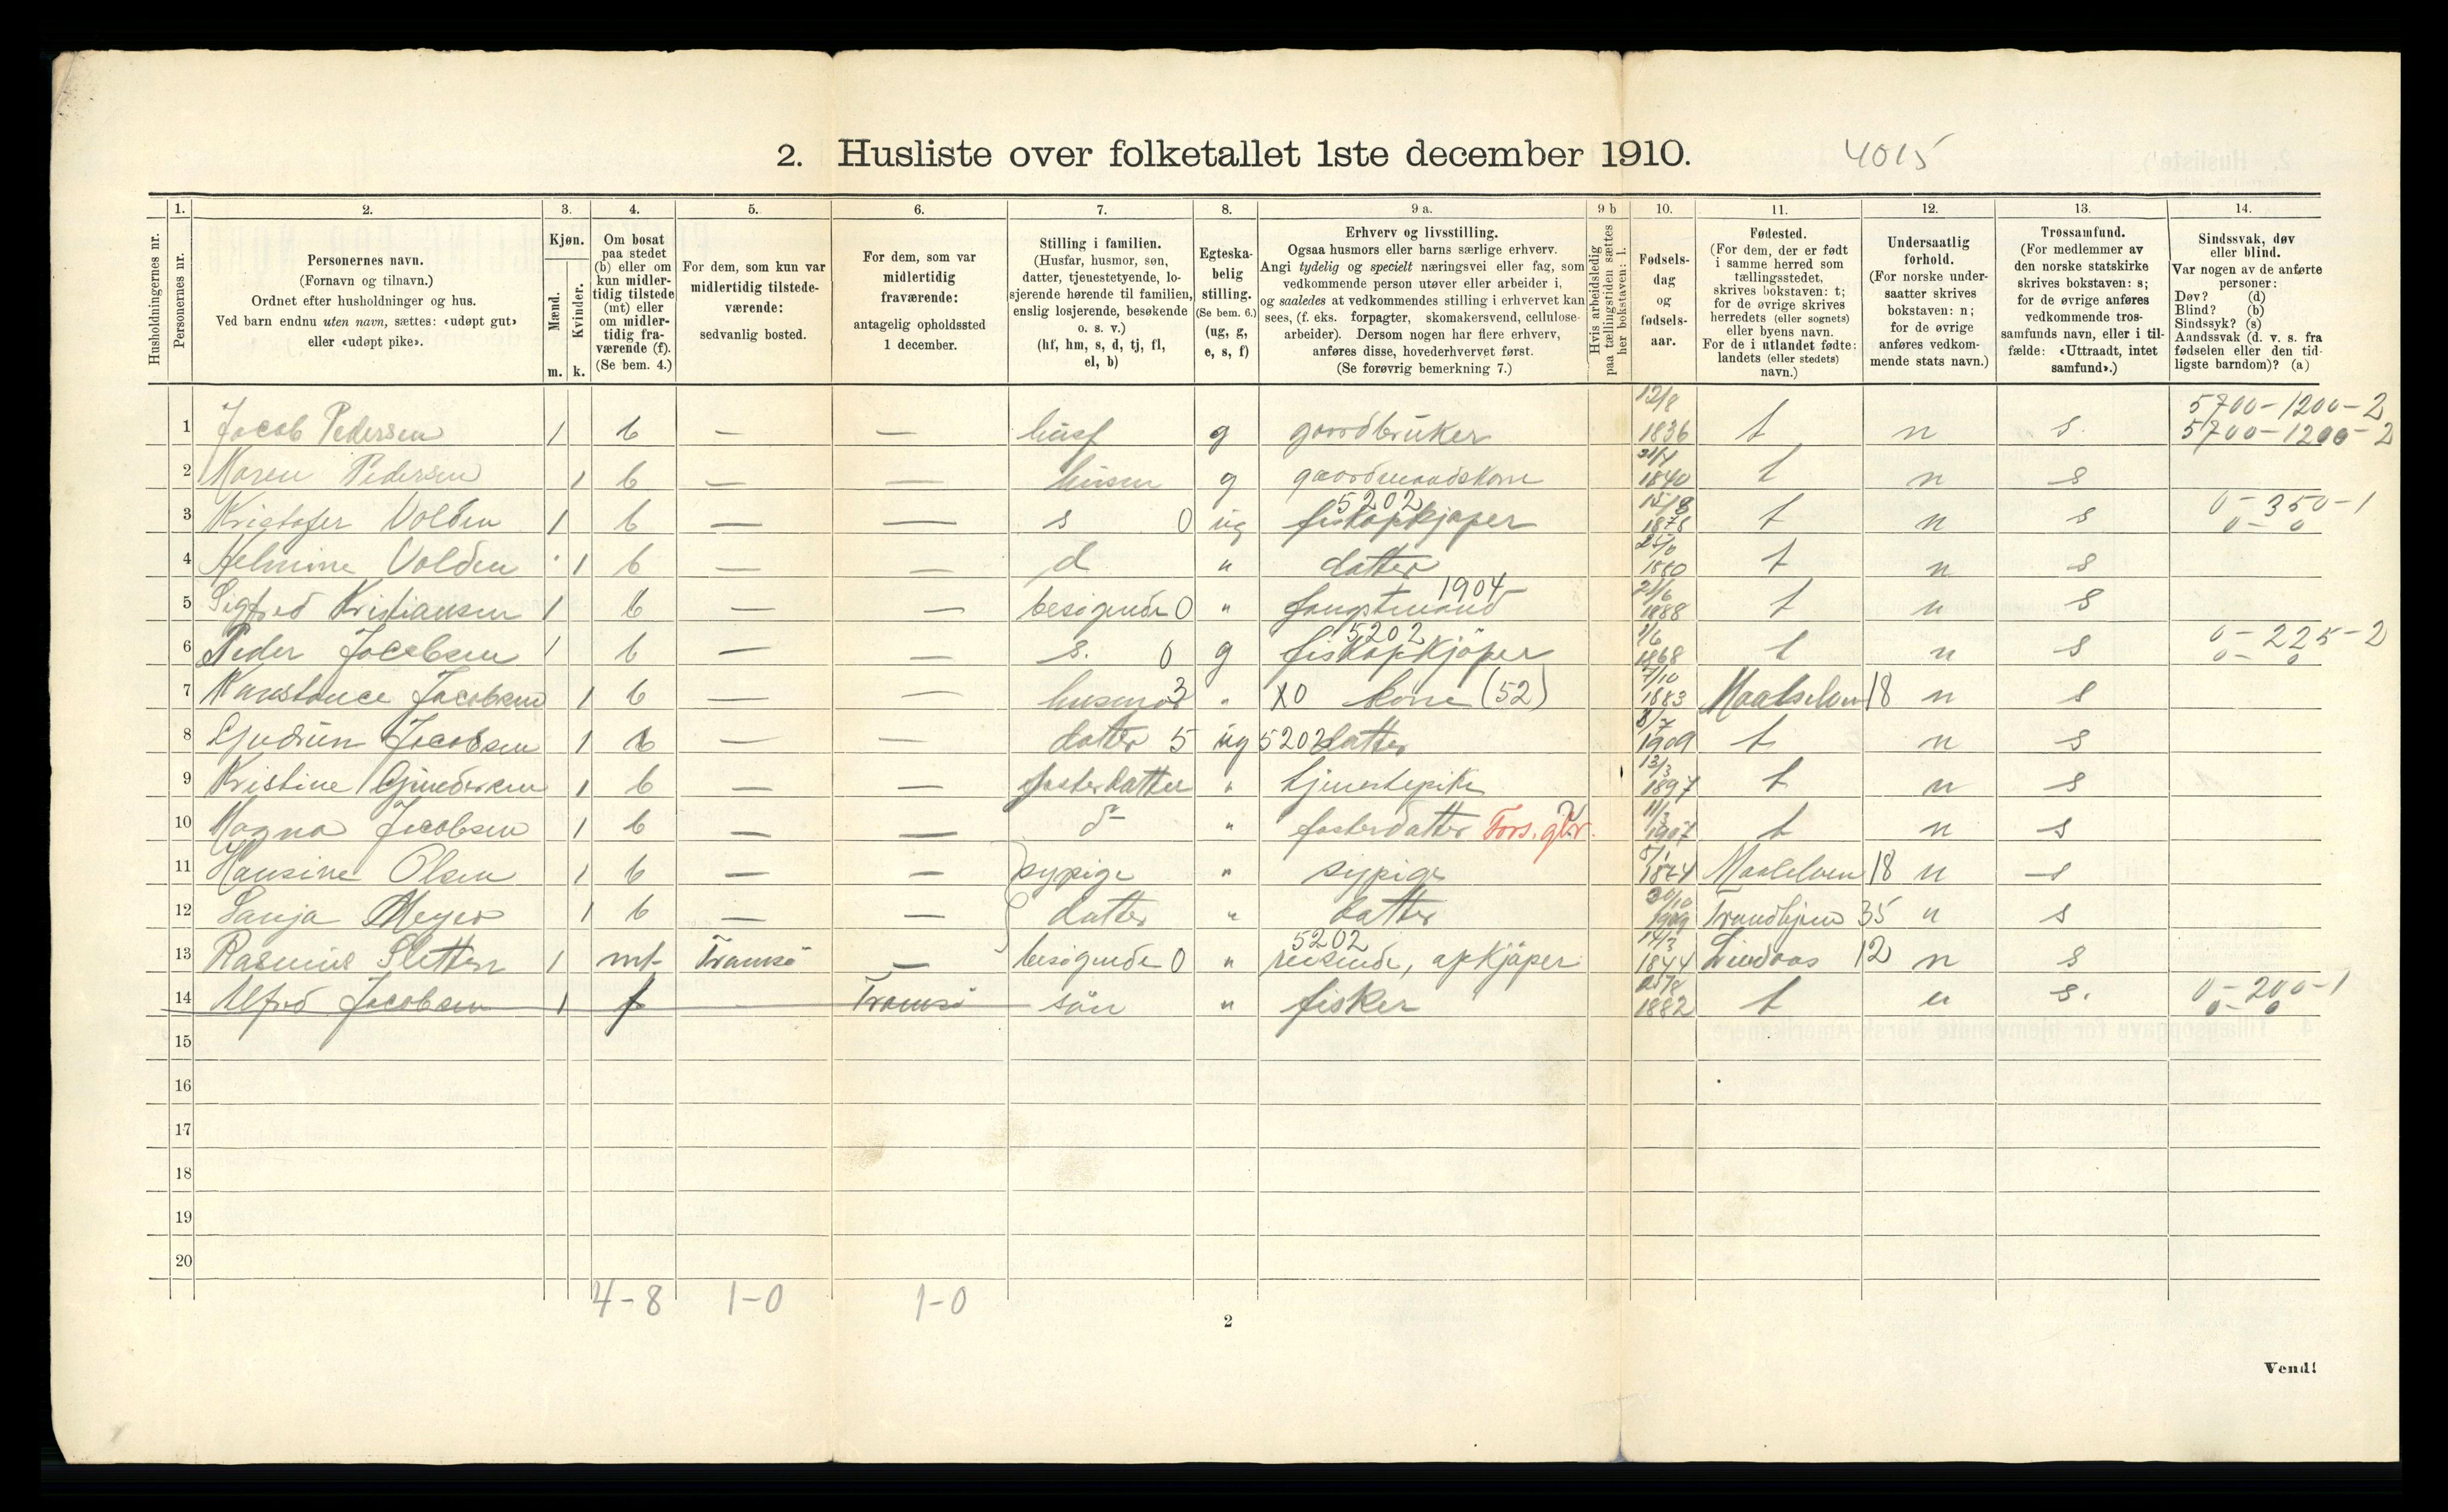 2. Husliste over folketallet 1ste december 1910. 4015
Husholdningernes nr.
1. Personernes nr.
2. Personernes navn.
(Fornavn og tilnavn.)
Ordnet efter husholdninger og hus.
Ved barn endnu uten navn, sættes: «udøpt gut»
eller «udøpt pike».
3. Kjøn.
Mænd. m.
Kvinder. k.
4. Om bosat
paa stedet
(b) eller om
kun midler-
tidig tilstede
(mt) eller
om midler-
tidig fra-
værende (f).
(Se bem. 4.)
5. For dem, som kun var
midlertidig tilstede-
værende:
sedvanlig bosted.
6. For dem, som var
midlertidig
fraværende:
antagelig opholdssted
1 december.
7. Stilling i familien.
(Husfar, husmor, søn,
datter, tjenestetyende, lo-
sjerende hørende til familien,
enslig losjerende, besøkende
o. s. v.)
(hf, hm, s, d, tj, fl,
el, b)
8. Egteska-
belig
stilling.
(Se bem. 6.)
(ug, g,
e, s, f)
9 a. Erhverv og livsstilling.
Ogsaa husmors eller barns særlige erhverv.
Angi tydelig og specielt næringsvei eller fag, som
vedkommende person utøver eller arbeider i,
og saaledes at vedkommendes stilling i erhvervet kan
sees, (f. eks. forpagter, skomakersvend, cellulose-
arbeider). Dersom nogen har flere erhverv,
anføres disse, hovederhvervet først.
(Se forøvrig bemerkning 7.)
9 b Hvis arbeidsledig
paa tællingstiden sættes
her bokstaven: l.
10. Fødsels-
dag
og
fødsels-
aar.
11. Fødested.
(For dem, der er født
i samme herred som
tællingsstedet,
skrives bokstaven: t;
for de øvrige skrives
herredets (eller sognets)
eller byens navn.
For de i utlandet fødte:
landets (eller stedets)
navn.)
12. Undersaatlig
forhold.
(For norske under-
saatter skrives
bokstaven: n;
for de øvrige
anføres vedkom-
mende stats navn.)
13. Trossamfund.
(For medlemmer av
den norske statskirke
skrives bokstaven: s;
for de øvrige anføres
vedkommende tros-
samfunds navn, eller i til-
fælde: «Uttraadt, intet
samfund».)
14. Sindssvak, døv
eller blind.
Var nogen av de anførte
personer:
Døv? (d)
Blind? (b)
Sindssyk? (s)
Aandssvak (d. v. s. fra
fødselen eller den tid-
ligste barndom)? (a)
1 Jacob Pedersen 1 b — — husf g gaardbruker 12/8 1836 t n s. 5700-1200-2 5700-1200-2
2 Maren Pedersen 1 b — — husm g gaardmandskone 1840 t n s
3 Kristofer Volden 1 b — — s 0 ug 5202 fiskopkjøper 1878 t n s 0-350-1 0-0
4 Helmine Volden 1 b — — d " datter 1880 t n s
5 Sigfred Kristiansen 1 b — — besøgende 0 " 1904 fangstmand 21/6 1888 t n s
6 Peder Jacobsen 1 b — — s. 0 g 5202 fiskopkjöper 1/6 1868 t n s 0-225-2 0-0
7 Konstance Jacobsen 1 b — — husmor 3 " X0 kone (52) 7/10 1883 Maalselven 18 n s
8 Gjudrun Jacobsen 1 b — — datter 5 ug 5202 datter 8/7 1909 t n s
9 Kristine 1 b — — fosterdatter " tjenestepike 13/3 1897 t n s
10 Magna Jacobsen 1 b — — d " fosterdatter Fors. 11/3 1907 t n s
11 Hansine Olsen 1 b — — sypige " sypige Maalselven 18 n s
12 Sanja Meyer 1 b — — datter " datter 30/10 1909 Trondhjem 35 n s
13 Rasmus Sletten 1 mt Tromsö — besøgende 0 " 5202 reisende, opkjöper 14/3 1844 Lindaas 12 n s
14 Alfred Jacobsen 1 f - Tromsö sön " fisker 1882 t n s. 0-200-1 0-0
15
16
17
18
19
20
4-8 1-0 1-0
2
Vend!